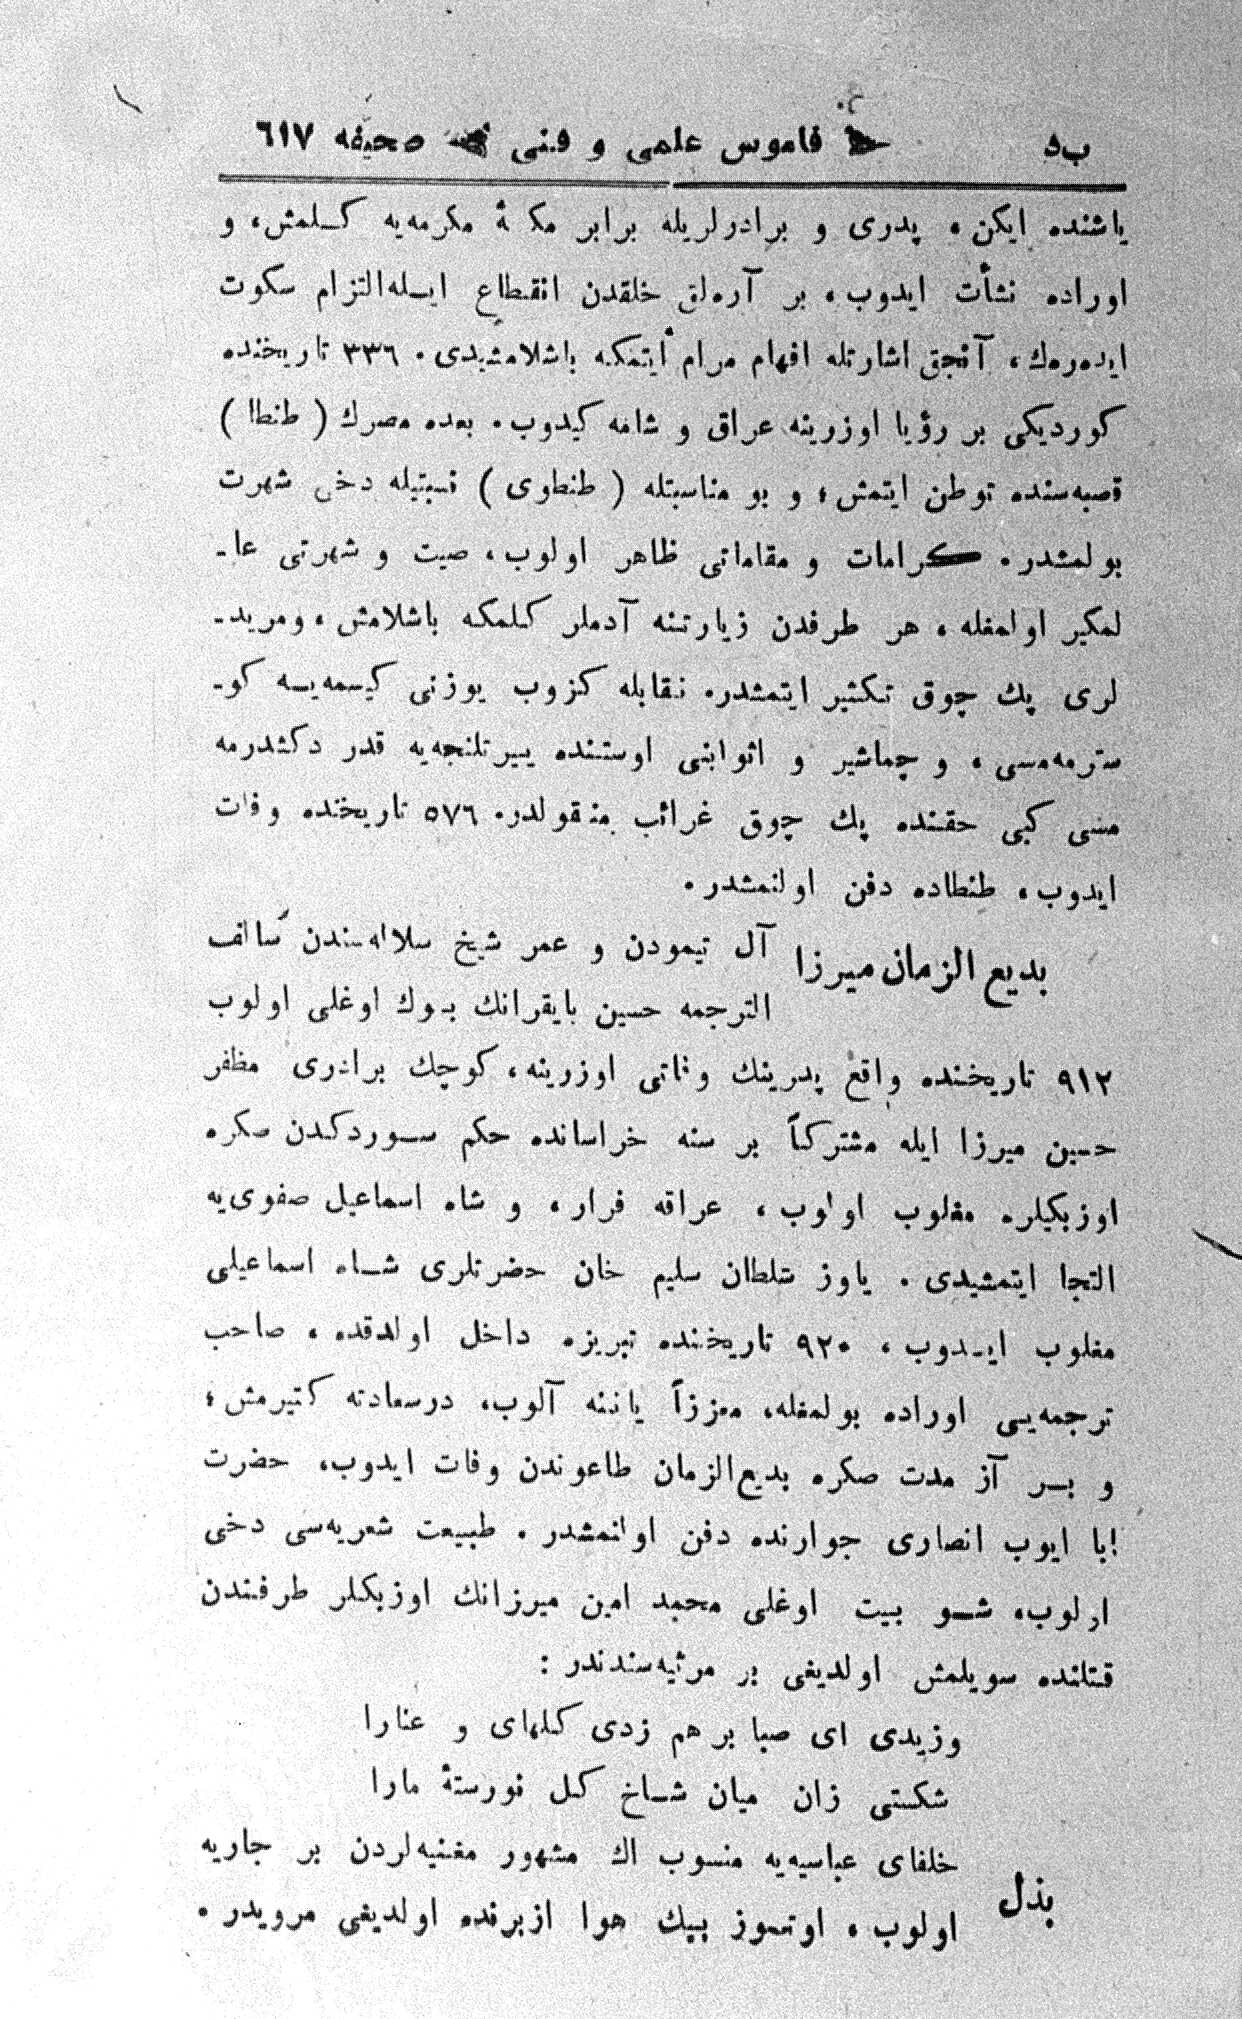 ب‌د قاموس علمی و فنی صحیفه ٦١٧
یاشنده ایکن، پدری و برادرلریله برابر مکۀ مکرمه‌یه کلمش، و
اوراده نشأت ایدوب، بر آره‌لق خلقدن انقطاع ایله التزام سکوت
ایده‌رەك، آنجق اشارتله افهام مرام ایتمکه باشلامشیدی. ٣٣٦ تاریخنده
کوردیکی بر رؤیا اوزرینه عراق و شامه کیدوب. بعده مصرك ( طنطا )
قصبه‌سنده توطن ایتمش؛ و بو مناسبتله ( طنطاوی ) نسبتیله دخی شهرت
بولمشدر. کرامات و مقاماتی ظاهر اولوب، صیت و شهرتی عا-
لمکیر اولمغله، هر طرفدن زیارتنه آدملر کلمکه باشلامش، ومرید-
لری پك چوق تکثیر ایتمشدر. نقابله کزوب یوزنی کیسمه‌یه کو-
سترمه‌مسی، و چماشیر و اثوابنی اوستنده ییرتلنجه‌یه قدر دکشدرمه
مسی کبی حقنده پك چوق غرائب منقولدر. ٥٧٦ تاریخنده وفات
ایدوب، طنطاده دفن اولنمشدر.
بدیع الزمان میرزا آل تیمودن و عمر شیخ سلاله‌سندن سالف
الترجمه حسین بایقرانك بیوك اوغلی اولوب
٩١٢ تاریخنده واقع پدرینك وفاتی اوزرینه، کوچك برادری مظفر
حسین میرزا ایله مشترکاً بر سنه خراسانده حکم سوردکدن صکره
اوزبکیلره مغلوب اولوب، عراقه فرار، و شاه اسماعیل صفوی‌یه
التجا ایتمشیدی. یاوز سلطان سلیم خان حضرتلری شاه اسماعیلی
مغلوب ایدوب، ٩٢٠ تاریخنده تبریزه داخل اولدقده، صاحب
ترجمه‌یی اوراده بولمغله، معززاً یاننه آلوب، درسعادته کتیرمش؛
و بر آز مدت صکره بدیع‌الزمان طاعوندن وفات ایدوب، حضرت
ابا ایوب انصاری جوارنده دفن اولنمشدر. طبیعت شعریه‌سی دخی
ارلوب، شو بیت اوغلی محمد امین میرزانك اوزبکلر طرفندن
قتلنده سویلمش اولدیغی بر مرثیه‌سندندر :
وزیدی ای صبا برهم زدی کلهای و عنارا
شکستی زان میان شاخ کل نورستۀ مارا
بذل خلفای عباسیه‌یه منسوب اك مشهور مغنیه‌لردن بر جاریه
اولوب، اوتموز بیك هوا ازبرنده اولدیغی مرویدر.